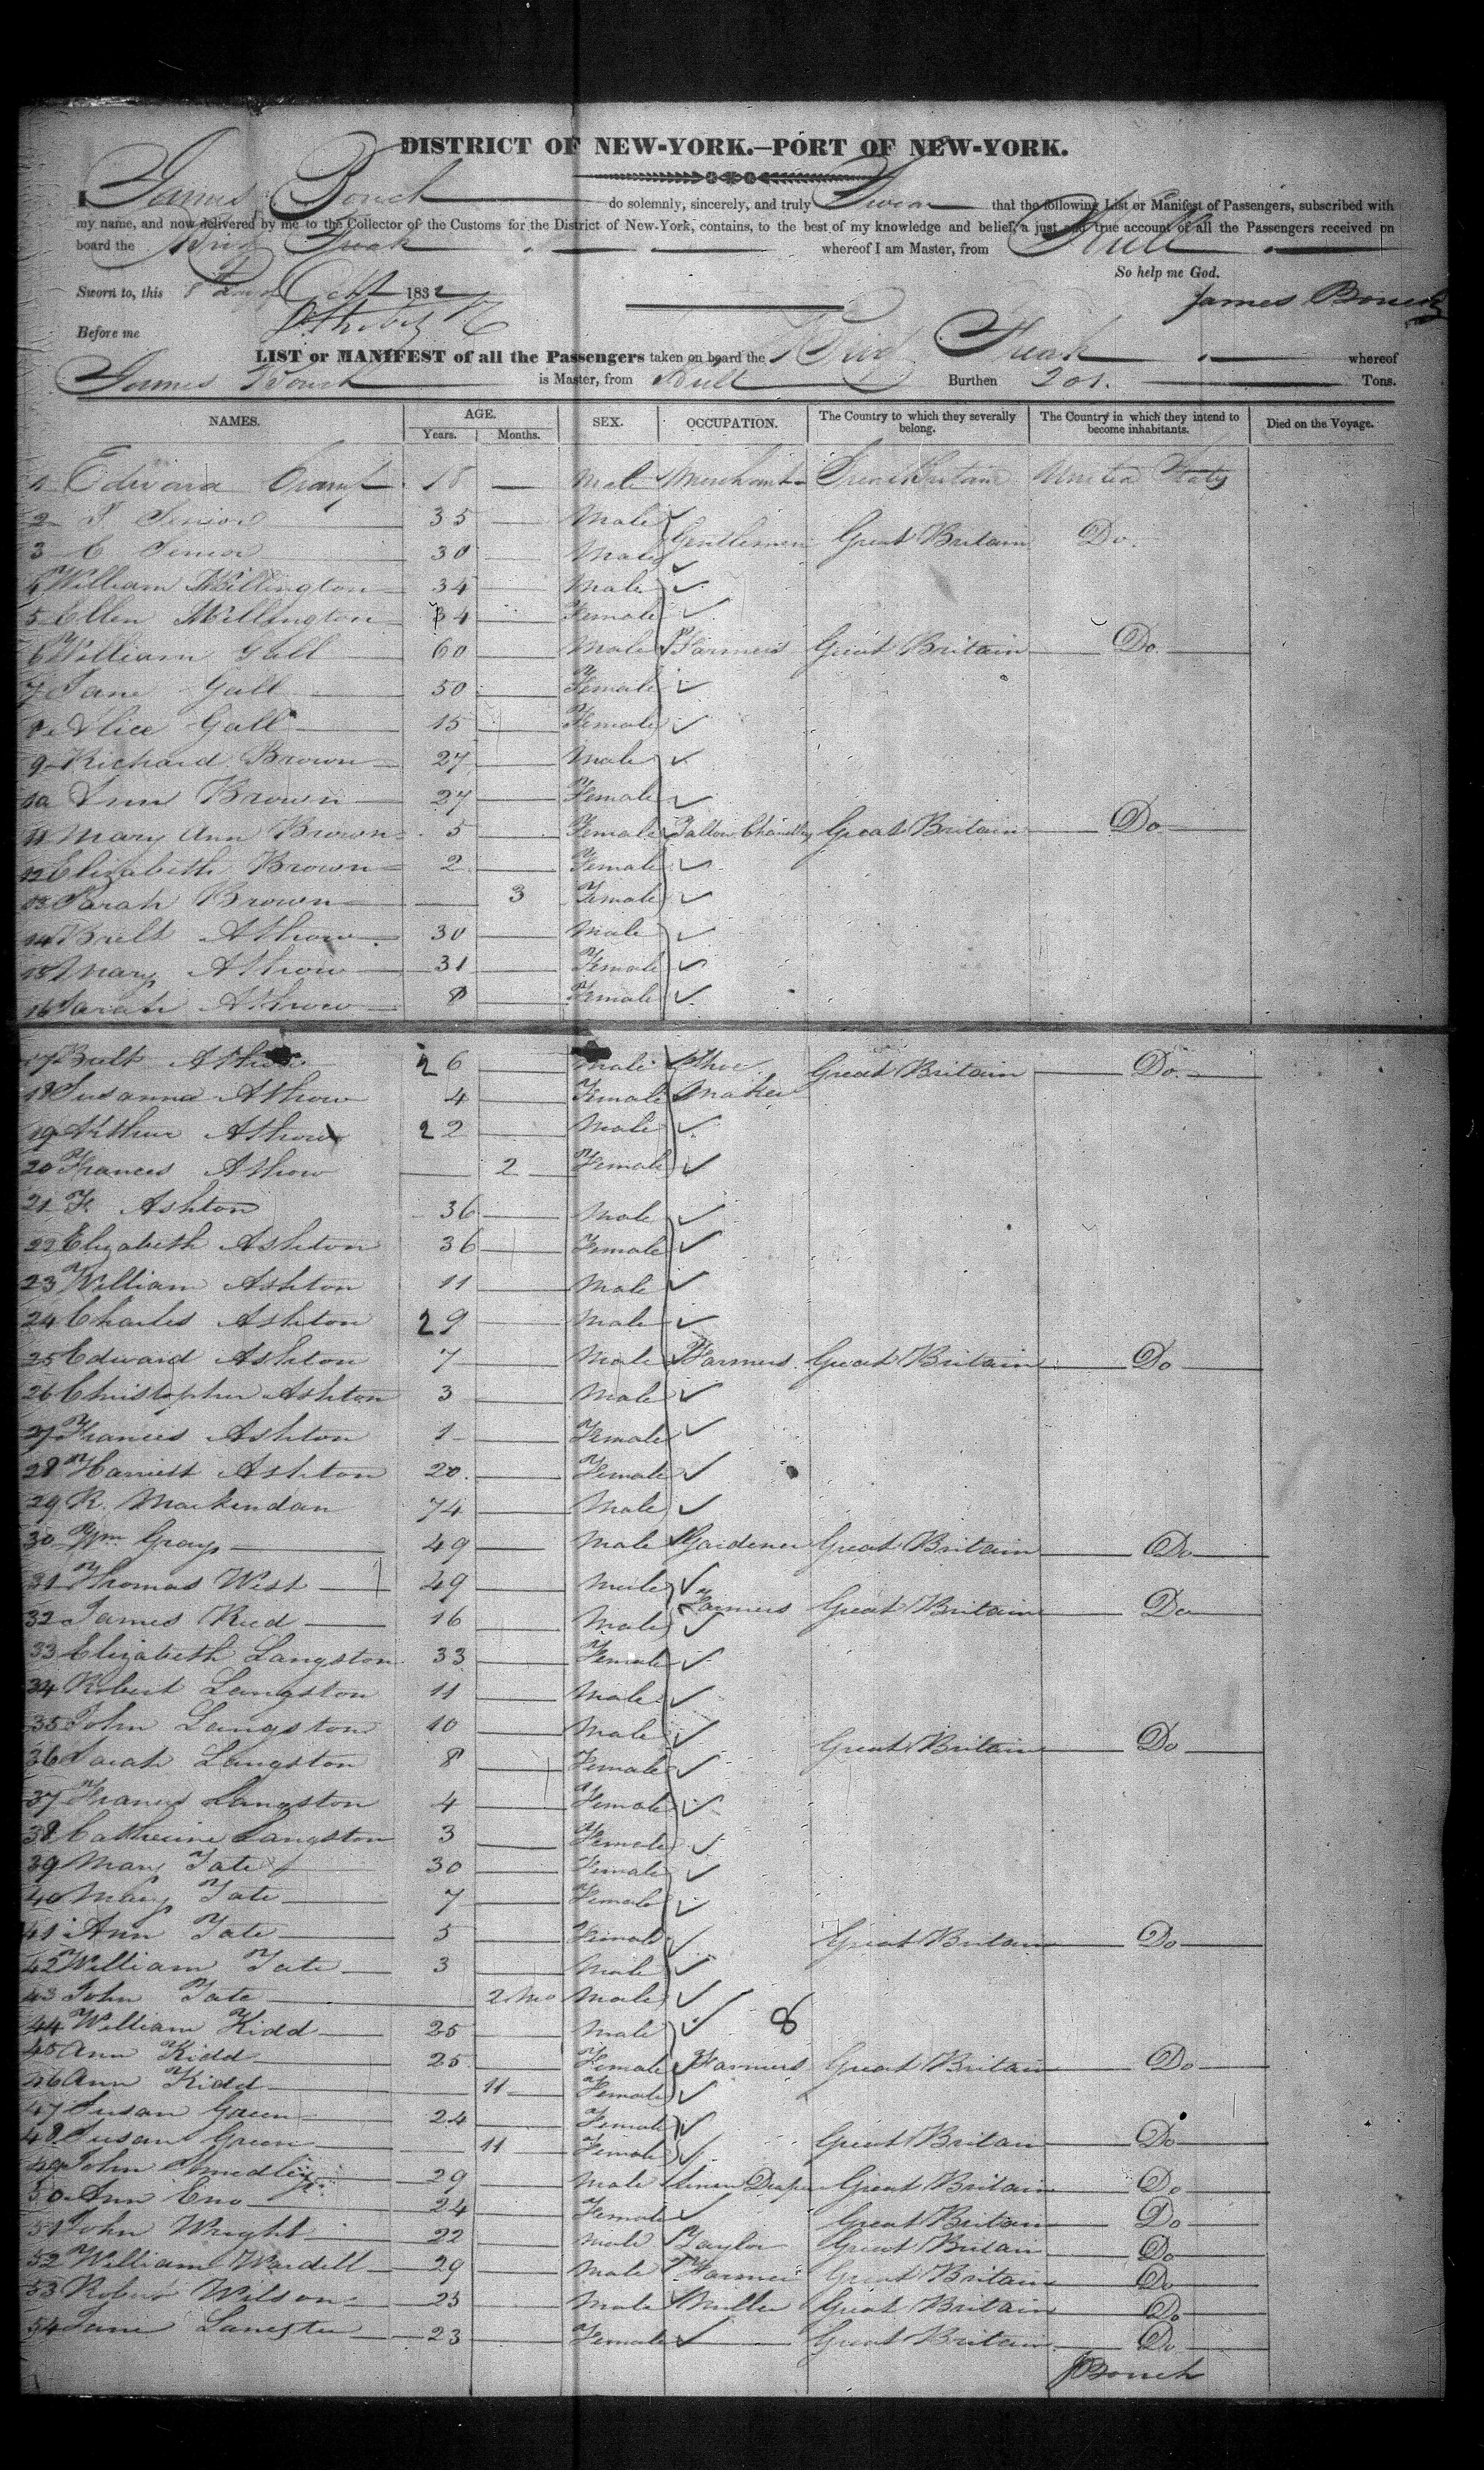 DISTRICT OF NEW-YORK.—PORT OF NEW-YORK.
I James Bouch do solemnly, sincerely, and truly Swear that the following List or Manifest of Passengers, subscribed with
my name, and now delivered by me to the Collector of the Customs for the District of New-York, contains, to the best of my knowledge and belief, a just and true account of all the Passengers received on
board the Brig Freak whereof I am Master, from Hull
So help me God.
Sworn to, this 8th day of Oct 1832 James Bouch
Before me
LIST or MANIFEST of all the Passengers taken on board the Brig Freak whereof
James Bouch is Master, from Hull Burthen 201. Tons.
NAMES. AGE. Years. Months. SEX. OCCUPATION. The Country to which they severally belong. The Country in which they intend to become inhabitants. Died on the Voyage.
1 Edward 18 — Male Merchant Great Britain United States
2 Senior 35 — Male
3 Senior 30 — Male Gentlemen Great Britain Do.
4 William Millington 34 — Male
5 Ellen Millington 34 — Female
6 William Gall 60 — Male Farmers Great Britain Do.
7 Jane Gall 50 — Female
8 Alice Gall 15 — Female
9 Richard Brown 27 — Male
10 Ann Brown 27 — Female
11 Mary Ann Brown 5 — Female Tallow Chandler Great Britain Do
12 Elizabeth Brown 2 — Female
13 Sarah Brown — 3 Female
14 Athow 30 — Male
15 Mary Athow 31 — Female
16 Sarah Athow 8 — Female
17 Athow 26 — Male Shoe Great Britain Do.
18 Susanna Athow 4 — Female Maker
19 Arthur Athow 22 — Male
20 Frances Athow — 2 Female
21 F. Ashton 36 — Male
22 Elizabeth Ashton 36 — Female
23 William Ashton 11 — Male
24 Charles Ashton 29 — Male
25 Edward Ashton 7 — Male Farmers Great Britain Do
26 Christopher Ashton 3 — Male
27 Frances Ashton 1 — Female
28 Harriett Ashton 20 — Female
29 R. Mackindan 74 — Male
30 Wm Gray 49 — Male Gardener Great Britain Do
31 Thomas West 49 — Male
32 James Reed 16 — Male Farmers Great Britain Do
33 Elizabeth Langston 33 — Female
34 Robert Langston 11 — Male
35 John Langston 10 — Male Great Britain Do
36 Sarah Langston 8 — Female
37 Frances Langston 4 — Female
38 Catherine Langston 3 — Female
39 Mary Tate 30 — Female
40 Mary Tate 7 — Female
41 Ann Tate 5 — Female Great Britain Do
42 William Tate 3 — Male
43 John Tate 2 Mo Male
44 William Kidd 25 — Male 8
45 Ann Kidd 25 — Female Farmers Great Britain Do
46 Ann Kidd — 11 Female
47 Susan Green 24 — Female
48 Susan Green — 11 Female Great Britain Do
49 John Smedley 29 — Male Linen Draper Great Britain Do
50 Ann Eno 24 — Female Great Britain Do
51 John Wright 22 — Male Taylor Great Britain Do
52 William Wardell 29 — Male Farmer Great Britain Do
53 Robert Wilson 23 — Male Miller Great Britain Do
54 Jane 23 — Female Great Britain Do
J Bouch